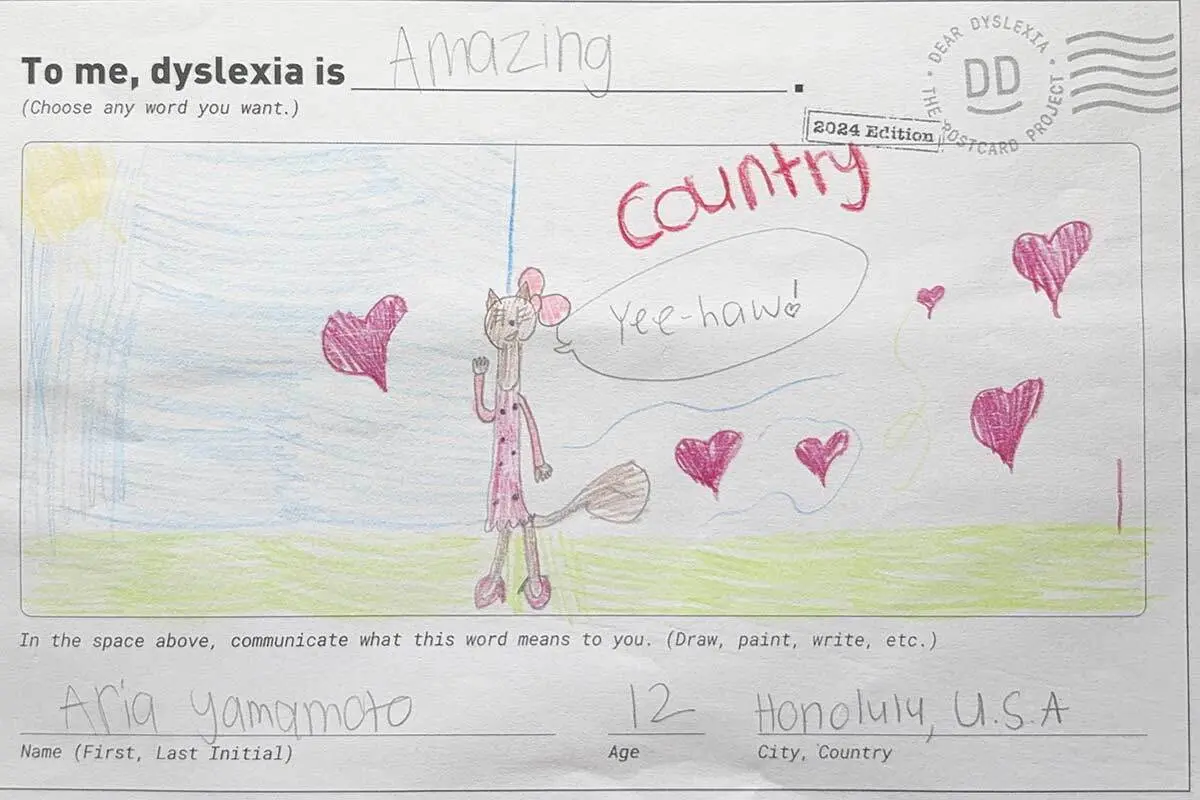 To me, dyslexia is Amazing.
(Choose any word you want.)
DEAR DYSLEXIA • THE POSTCARD PROJECT •
DD
2024 Edition
Country
Yee-haw!
In the space above, communicate what this word means to you. (Draw, paint, write, etc.)
Aria Yamamoto 12 Honolulu, U.S.A
Name (First, Last Initial) Age City, Country